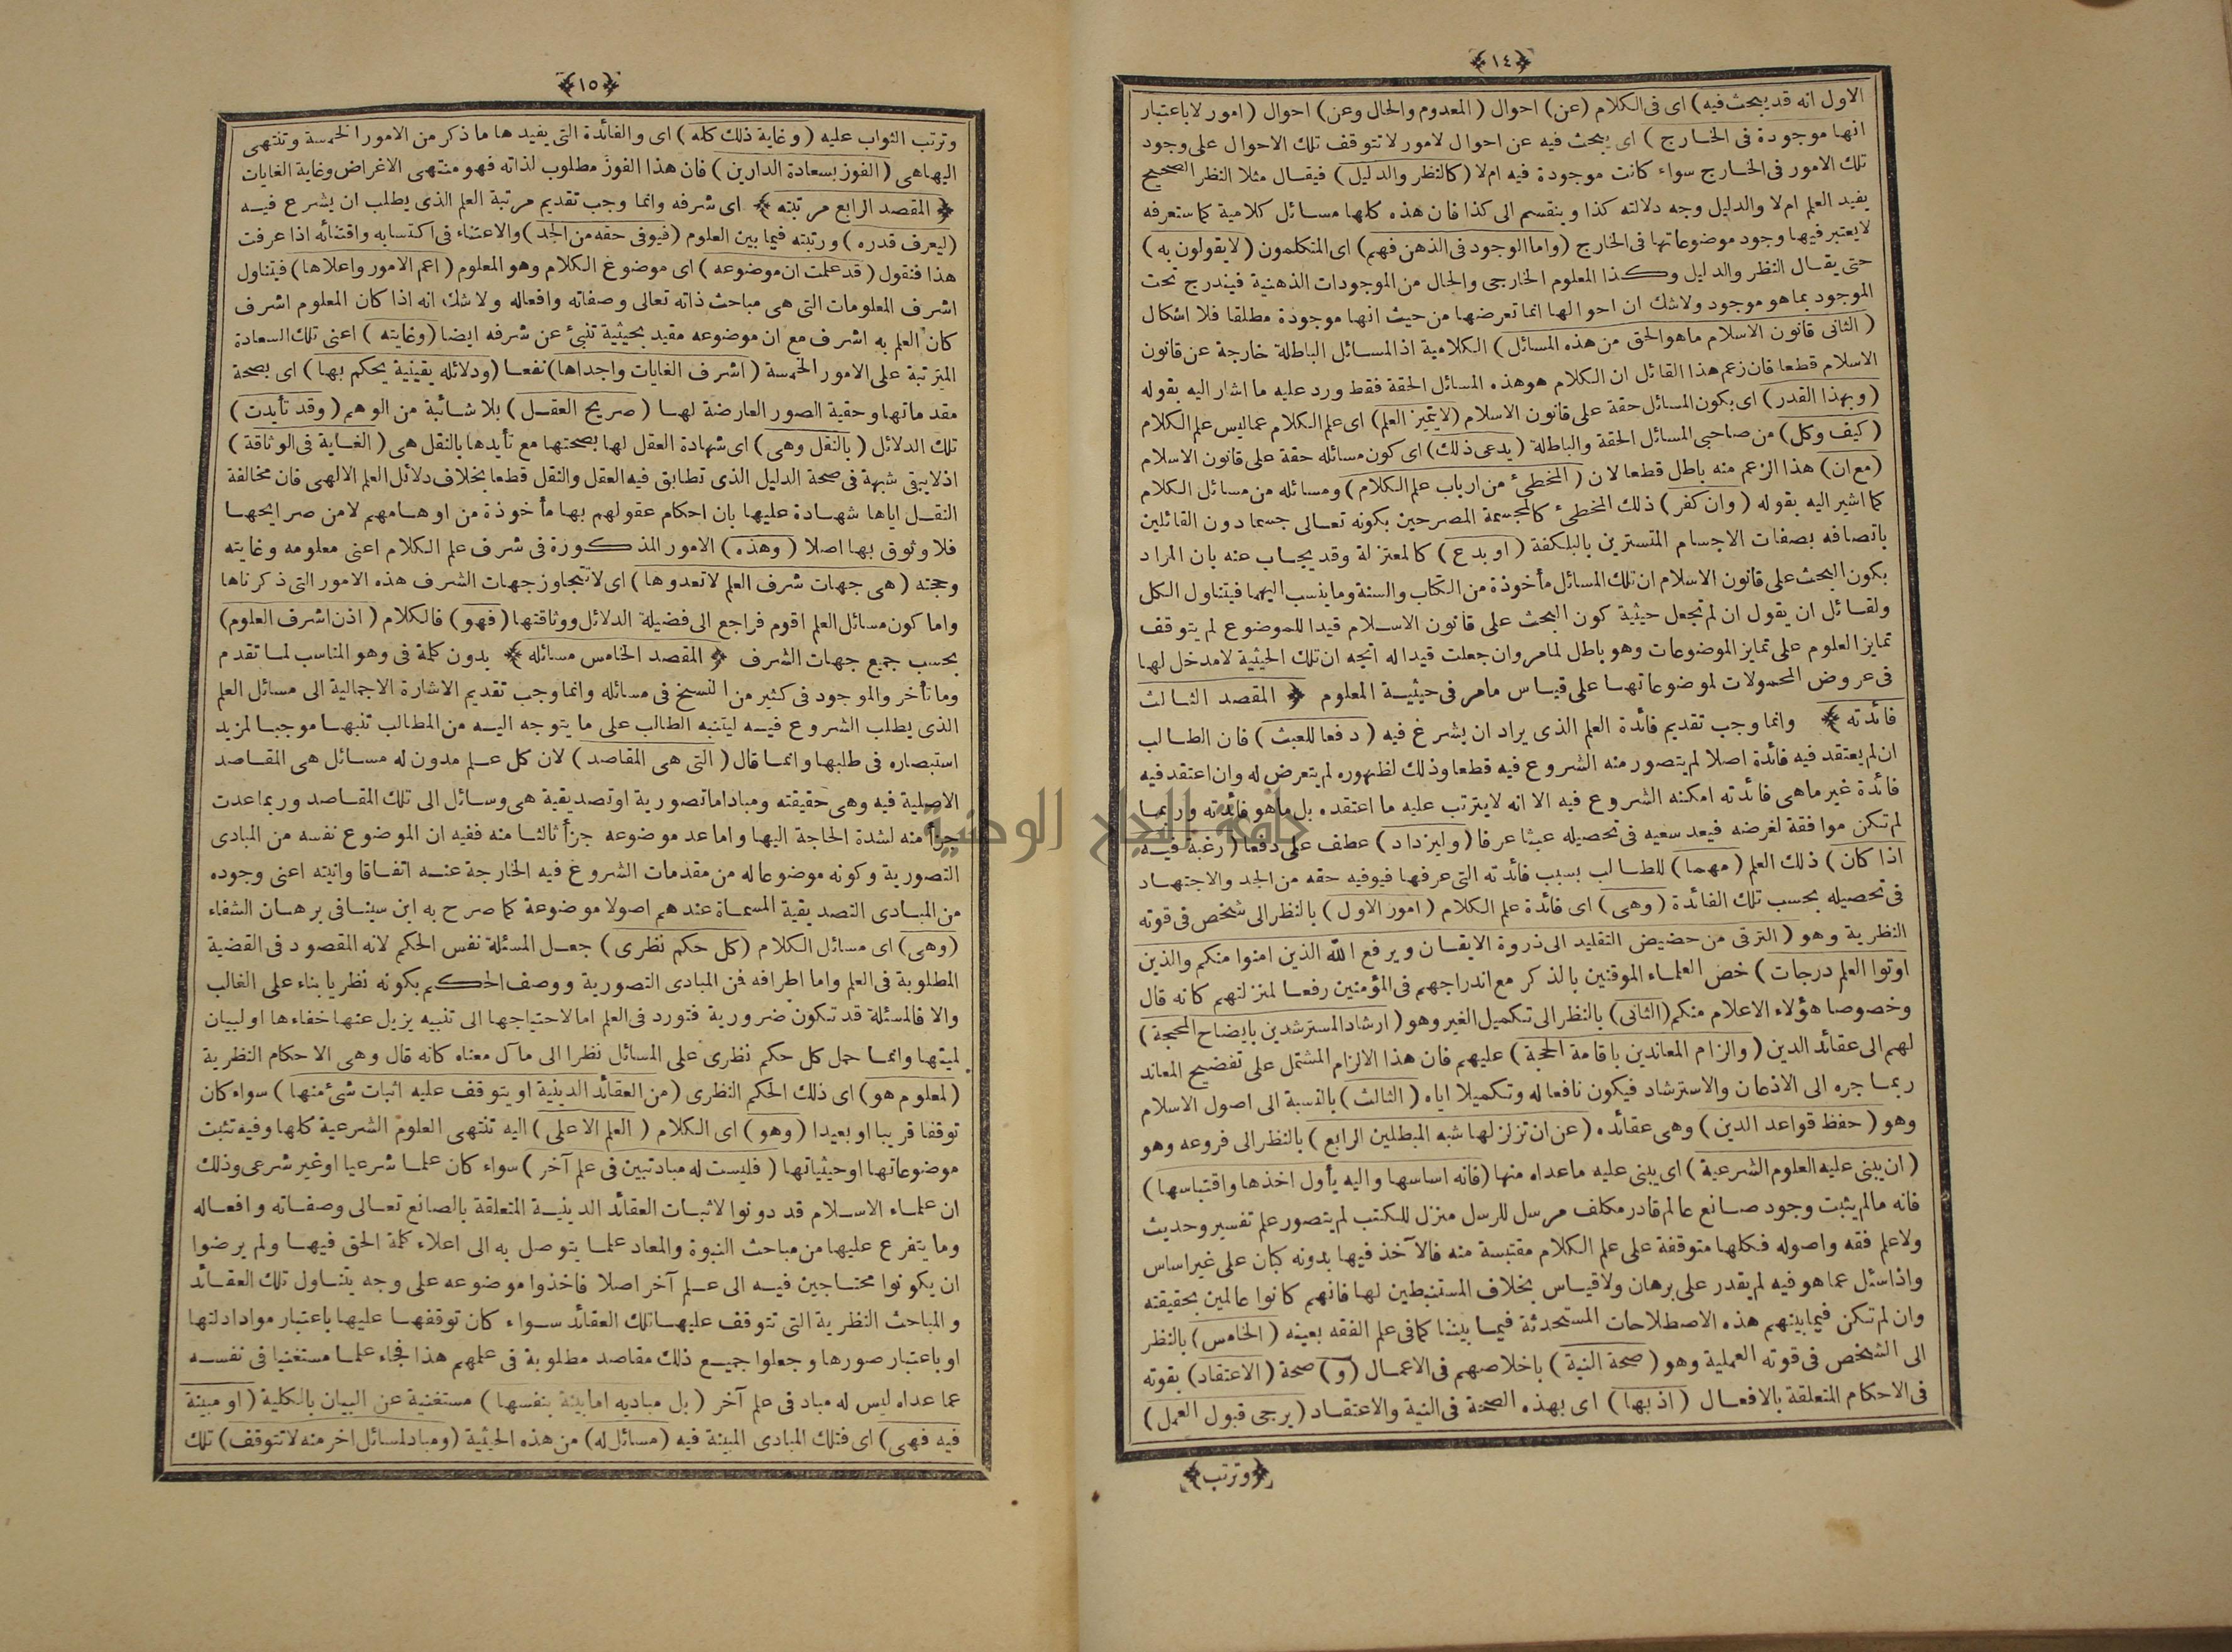 ﴿١٤﴾
الاول انه قد يبحث فيه) اى فى الكلام (عن) احوال (المعدوم والحال وعن) احوال (امور لا باعتبار
انها موجودة فى الخــارج ) اى يبحث فيه عن احوال لامور لا تتوقف تلك الاحوال على وجود
تلك الامور فى الخــارج سواء كانت موجودة فيه ام لا (كالنظر والدليل) فيقــال مثلا النظر الصحيح
يفيد العلم ام لا والدليل وجه دلالته كذا وينقسم الى كذا فان هذه كلها مســائل كلامية كما ستعرفه
لا يعتبر فيها وجود موضوعاتها فى الخارج (واما الوجود فى الذهن فهم) اى المتكلمون (لا يقولون به)
حتى يقــال النظر والدليل وكذا المعلوم الخارجى والحال من الموجودات الذهنية فيندرج تحت
الموجود بما هو موجود ولا شك ان احوالها انما تعرضها من حيث انها موجودة مطلقا فلا اشكال
( الثانى قانون الاسلام ما هو الحق من هذه المسائل) الكلامية اذ المســائل الباطلة خارجة عن قانون
الاسلام قطعا فان زعم هذا القائل ان الكلام هو هذه المسائل الحقة فقط ورد عليه ما اشار اليه بقوله
(وبهذا القدر) اى بكون المسائل حقة على قانون الاسلام (لا يتميز العلم) اى علم الكلام عما ليس علم الكلام
(كيف وكل) من صاحبى المسائل الحقة والباطلة (يدعى ذلك) اى كون مسائله حقة على قانون الاسلام
(مع ان) هذا الزعم منه باطل قطعا لان (المخطئ من ارباب علم الكلام) ومسائله من مسائل الكلام
كما اشير اليه بقوله (وان كفر) ذلك المخطئ كالمجسمة المصرحين بكونه تعــالى جسما دون القائلين
باتصافه بصفات الاجسام المتسترين بالبلكفة (او بدع) كالمعتزلة وقد يجــاب عنه بان المراد
بكون البحث على قانون الاسلام ان تلك المسائل مأخوذة من الكتاب والسنة وما ينسب اليهما فيتناول الكل
ولقــائل ان يقول ان لم تجعل حيثية كون البحث على قانون الاســلام قيدا للموضوع لم يتوقف
تمايز العلوم على تمايز الموضوعات وهو باطل لمامر وان جعلت قيدا له اتجه ان تلك الحيثية لا مدخل لها
فى عروض المحمولات لموضوعاتهــا على قيــاس مامر فى حيثيــة المعلوم ﴿ المقصد الثــالث
فائدته ﴾ وانما وجب تقديم فائدة العلم الذى يراد ان يشرع فيه (دفعا للعبث) فان الطــالب
ان لم يعتقد فيه فائدة اصلا لم يتصور منه الشروع فيه قطعا وذلك لظهوره لم يتعرض له وان اعتقد فيه
فائدة غير ما هى فائدته امكنه الشروع فيه الا انه لا يترتب عليه ما اعتقده بل ما هو فائدته وربمــا
لم تكن موافقة لغرضه فيعد سعيه فى تحصيله عبثا عرفا (وليزداد) عطف على دفعا (رغبة فيــه
اذا كان) ذلك العلم (مهما) للطــالب بسبب فائدته التى عرفها فيوفيه حقه من الجد والاجتهــاد
فى تحصيله بحسب تلك الفائدة (وهى) اى فائدة علم الكلام (امور الاول) بالنظر الى شخص فى قوته
النظرية وهو (الترقى من حضيض التقليد الى ذروة الايقــان ويرفع الله الذين امنوا منكم والذين
اوتوا العلم درجات) خص العلمــاء الموقنين بالذكر مع اندراجهم فى المؤمنين رفعــا لمنزلتهم كانه قال
وخصوصا هؤلاء الاعلام منكم (الثانى) بالنظر الى تكميل الغير وهو (ارشاد المسترشدين بايضاح المحجة)
لهم الى عقائد الدين (والزام المعاندين باقامة الحجة) عليهم فان هذا الالزام المشتمل على تفضيح المعاند
ربمــا جره الى الاذعان والاسترشاد فيكون نافعا له وتكميلا اياه (الثالث) بالنسبة الى اصول الاسلام
وهو (حفظ قواعد الدين) وهى عقائده (عن ان تزلزلها شبه المبطلين الرابع) بالنظر الى فروعه وهو
(ان يبنى عليه العلوم الشرعية) اى يبنى عليه ما عداه منها (فانه اساسها واليه يأول اخذها واقتباسها)
فانه مالم يثبت وجود صــانع عالم قادر مكلف مرسل للرسل منزل للكتب لم يتصور علم تفسير وحديث
ولا علم فقه واصوله فكلها متوقفة على علم الكلام مقتبسة منه فالآخذ فيها بدونه كبان على غير اساس
واذا سئل عما هو فيه لم يقدر على برهان ولا قيــاس بخلاف المستنبطين لها فانهم كانوا عالمين بحقيقته
وان لم تكن فيما بينهم هذه الاصطلاحات المستحدثة فيمــا بيننا كما فى علم الفقه بعينه (الخامس) بالنظر
الى الشخص فى قوته العملية وهو (صحة النية) باخلاصهم فى الاعمــال (و) صحة (الاعتقاد) بقوته
فى الاحكام المتعلقة بالافعــال (اذ بها) اى بهذه الصحة فى النية والاعتقــاد (يرجى قبول العمل)
﴿وترتب﴾
﴿١٥﴾
وترتب الثواب عليه (وغاية ذلك كله) اى والفائدة التى يفيدها ما ذكر من الامور الخمسة وتنتهى
اليها هى (الفوز بسعادة الدارين) فان هذا الفوز مطلوب لذاته فهو منتهى الاغراض وغاية الغايات
﴿ المقصد الرابع مرتبته ﴾ اى شرفه وانما وجب تقديم مرتبة العلم الذى يطلب ان يشرع فيــه
(ليعرف قدره) ورتبته فيما بين العلوم (فيوفى حقه من الجد) والاعتناء فى اكتسابه واقتنائه اذا عرفت
هذا فنقول (قد علمت ان موضوعه) اى موضوع الكلام وهو المعلوم (اعم الامور واعلاها) فيتناول
اشرف المعلومات التى هى مباحث ذاته تعالى وصفاته وافعاله ولا شك انه اذا كان المعلوم اشرف
كان العلم به اشرف مع ان موضوعه مقيد بحيثية تنبئ عن شرفه ايضا (وغايته) اعنى تلك السعادة
المترتبة على الامور الخمسة (اشرف الغايات واجداها) نفعــا (ودلائله يقينية يحكم بها) اى بصحة
مقدماتها وحقية الصور العارضة لهــا (صريح العقــل) بلا شــائبة من الوهم (وقد تأيدت)
تلك الدلائل (بالنقل وهى) اى شهادة العقل لها بصحتها مع تأيدها بالنقل هى (الغــاية فى الوثاقة)
اذ لا يبقى شبهة فى صحة الدليل الذى تطابق فيه العقل والنقل قطعا بخلاف دلائل العلم الالهى فان مخالفة
النقــل اياها شهــادة عليها بان احكام عقولهم بها مأخوذة من اوهــامهم لا من صرايحهــا
فلا وثوق بها اصلا (وهذه) الامور المذكورة فى شرف علم الكلام اعنى معلومه وغايته
وحجته (هى جهات شرف العلم لا تعدوها) اى لا تتجاوز جهات الشرف هذه الامور التى ذكرناها
واما كون مسائل العلم اقوم فراجع الى فضيلة الدلائل ووثاقتها (فهو) فالكلام (اذن اشرف العلوم)
بحسب جميع جهات الشرف ﴿ المقصد الخامس مسائله ﴾ بدون كلمة فى وهو المناسب لمــا تقدم
وما تأخر والموجود فى كثير من النسخ فى مسائله وانما وجب تقديم الاشارة الاجمالية الى مسائل العلم
الذى يطلب الشروع فيــه ليتنبه الطالب على ما يتوجه اليــه من المطالب تنبهــا موجبــا لمزيد
استبصاره فى طلبها وانمــا قال (التى هى المقاصد) لان كل علــم مدون له مســائل هى المقــاصد
الاصلية فيه وهى حقيقته ومباد اما تصورية او تصديقية هى وسائل الى تلك المقــاصد وربما عدت
جزأ منه لشدة الحاجة اليها واما عد موضوعه جزأ ثالثــا منه ففيه ان الموضوع نفسه من المبادى
التصورية وكونه موضوعا له من مقدمات الشروع فيه الخارجة عنــه اتفــاقا وانيته اعنى وجوده
من المبــادى التصديقية المسمــاة عندهم اصولا موضوعة كما صرح به ابن سينــا فى برهــان الشفاء
(وهى) اى مسائل الكلام (كل حكم نظرى) جعــل المسئلة نفس الحكم لانه المقصود فى القضية
المطلوبة فى العلم واما اطرافه فمن المبادى التصورية ووصف الحكم بكونه نظريا بناء على الغالب
والا فالمسئلة قد تكون ضرورية فتورد فى العلم اما لاحتياجها الى تنبيه يزيل عنها خفاءها او لبيان
لميتها وانمــا حمل كل حكم نظرى على المسائل نظرا الى مآل معناه كانه قال وهى الاحكام النظرية
(لمعلوم هو) اى ذلك الحكم النظرى (من العقائد الدينية او يتوقف عليه اثبات شئ منها) سواء كان
توقفا قريبا او بعيدا (وهو) اى الكلام (العلم الاعلى) اليه تنتهى العلوم الشرعية كلها وفيه تثبت
موضوعاتها او حيثياتها (فليست له مباد تبين فى علم آخر) سواء كان علمــا شرعيا او غير شرعى وذلك
ان علمــاء الاســلام قد دونوا لاثبــات العقائد الدينيــة المتعلقة بالصانع تعــالى وصفــاته وافعــاله
وما يتفرع عليها من مباحث النبوة والمعاد علمــا يتوصل به الى اعلاء كلمة الحق فيهــا ولم يرضوا
ان يكونوا محتــاجين فيــه الى علــم آخر اصلا فاخذوا موضوعه على وجه يتنــاول تلك العقــائد
والمباحث النظرية التى تتوقف عليهــا تلك العقائد ســواء كان توقفهــا عليها باعتبار مواد ادلتها
او باعتبار صورها وجعلوا جميــع ذلك مقاصد مطلوبة فى علمهم هذا فجاء علمــا مستغنيا فى نفســه
عما عداه ليس له مباد فى علم آخر (بل مباديه اما بينة بنفسها) مستغنية عن البيان بالكلية (او مبينة
فيه فهى) اى فتلك المبادى المبينة فيه (مسائل له) من هذه الحيثية (ومباد لمسائل اخر منه لا تتوقف) تلك
جامعة النجاح الوطنية